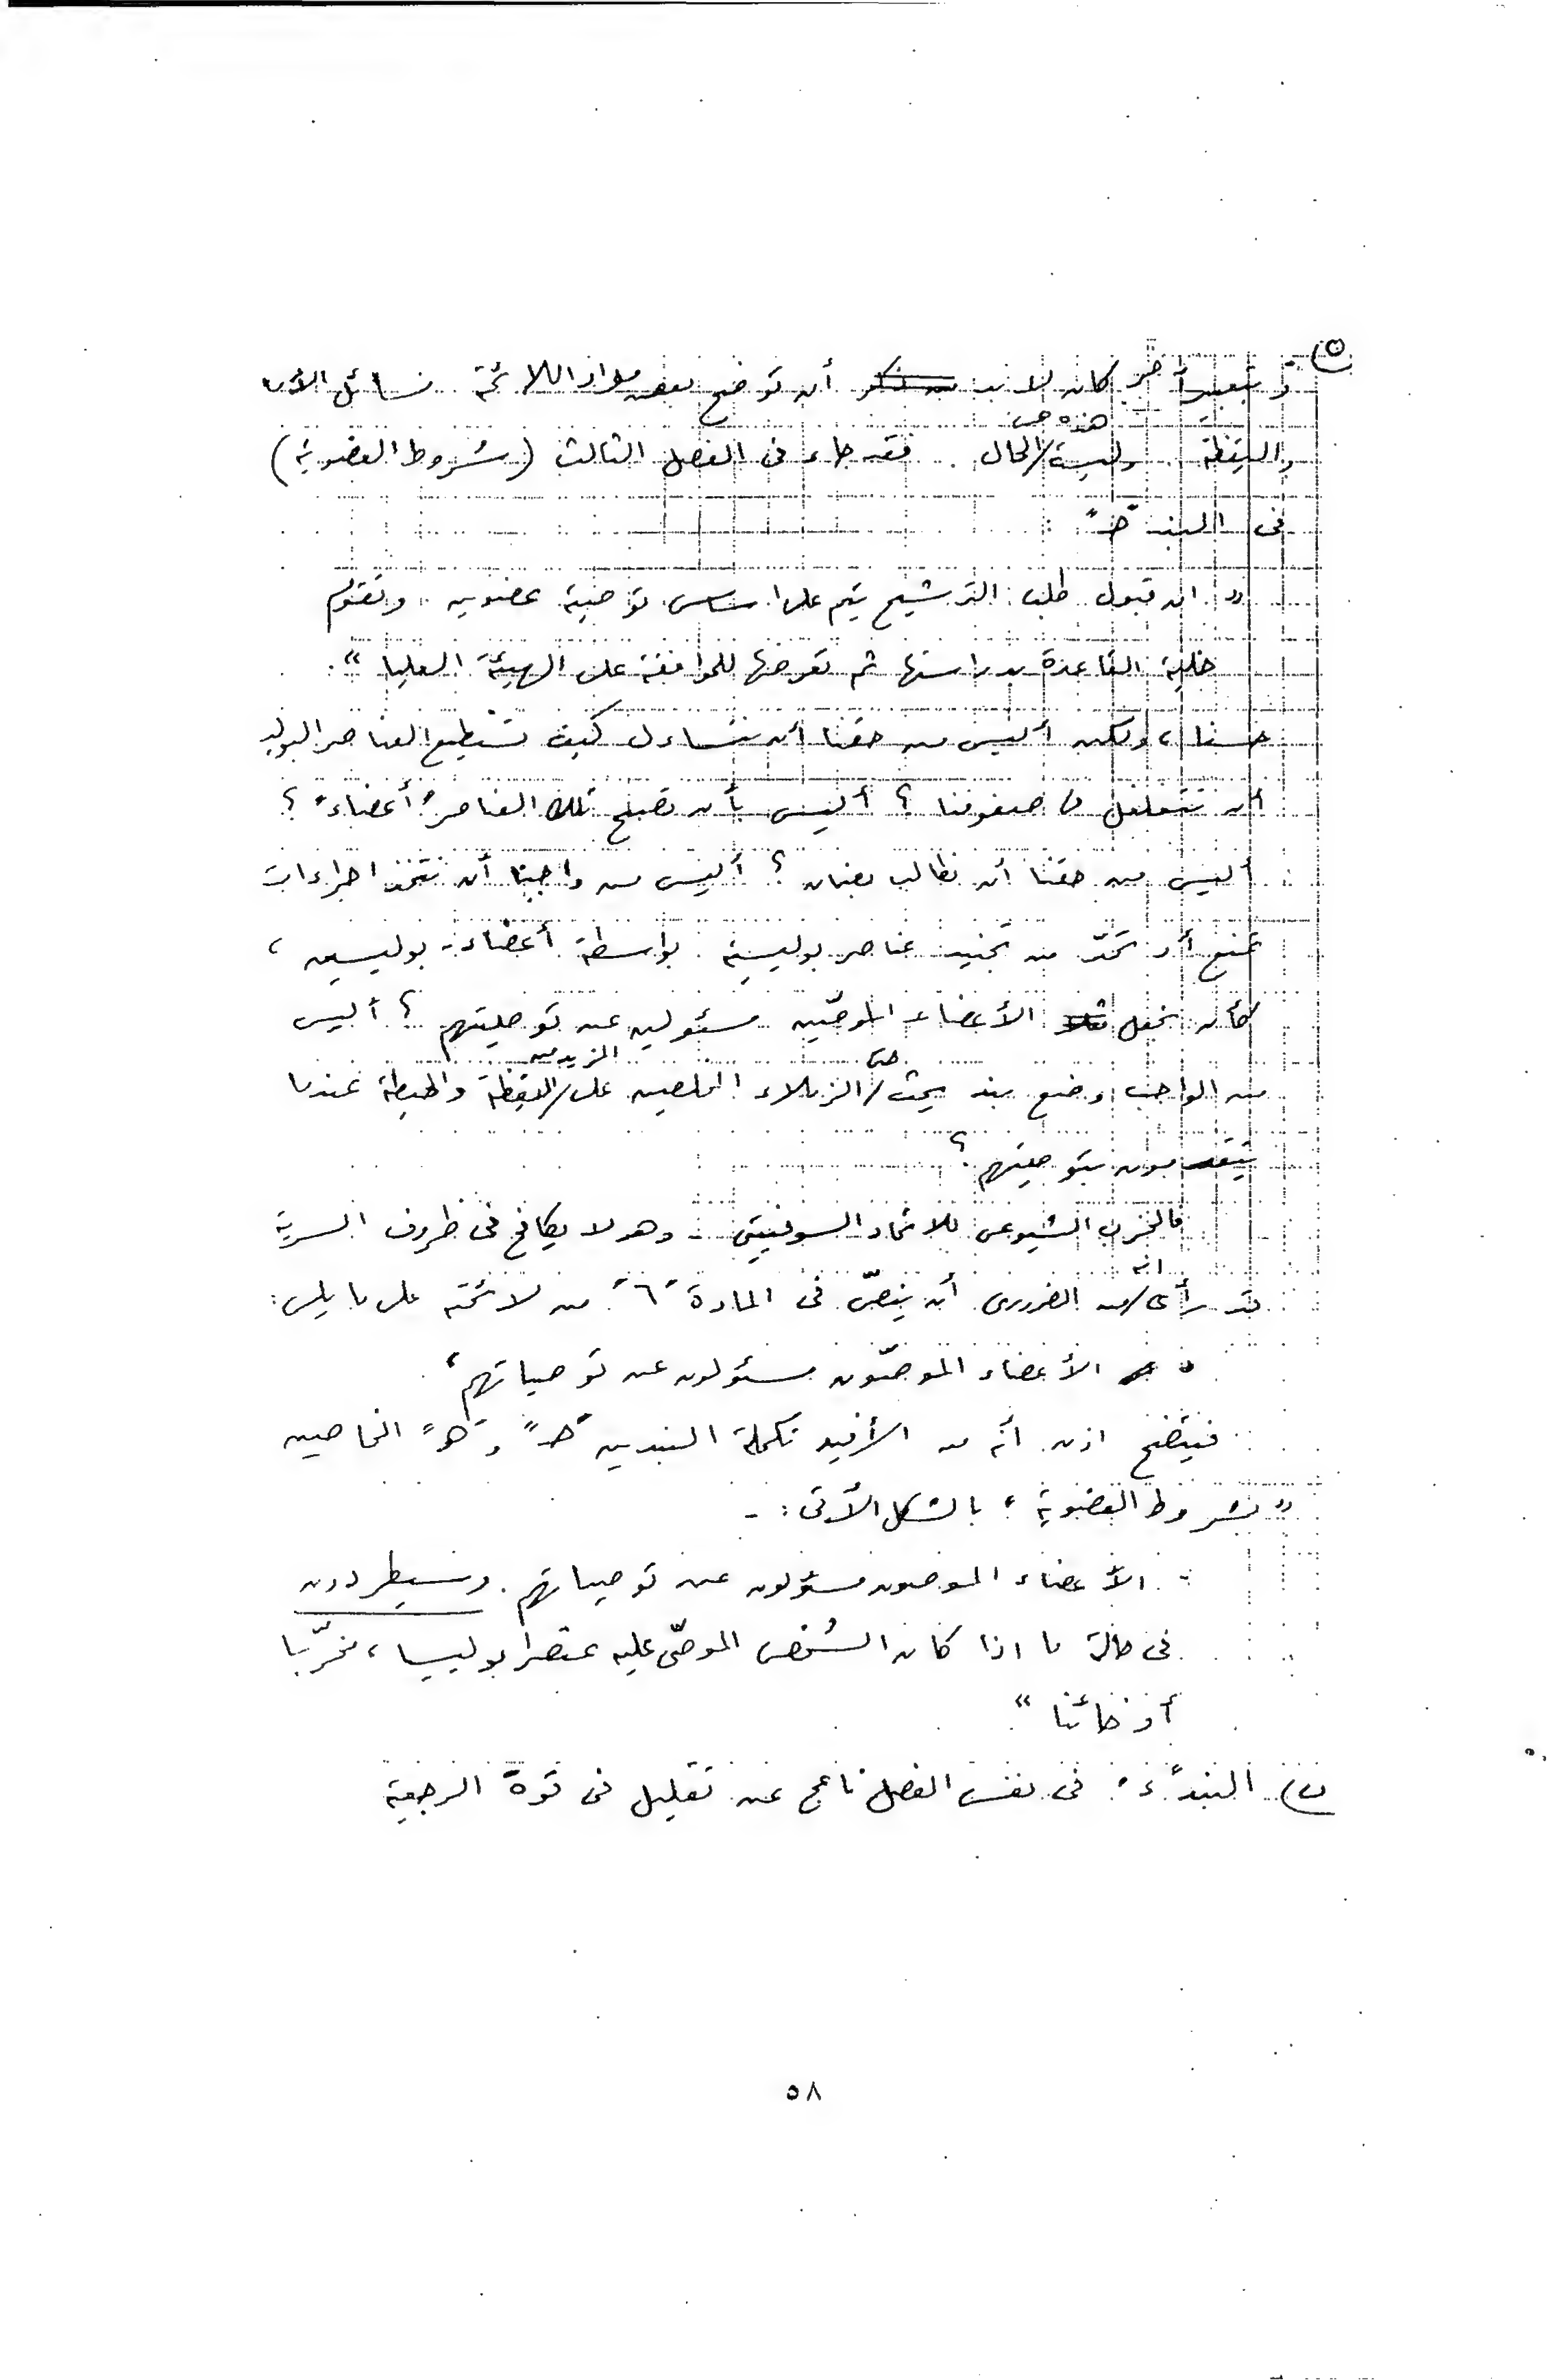 ٥
وبتعبير آخر كان لا بد أن توضح بعض مواد اللائحة مسائل الأمن
واليقظة. وليست هذه هى الحال. فقد جاء فى الفصل الثالث (شروط العضوية)
فى البند "حـ" :
" ان قبول طلب الترشيح يتم على اساس توصية عضوين. وتقوم
خلية القاعدة بدراستها ثم تعرضها للموافقة على الهيئة العليا ".
حسنا، ولكن أليس من حقنا أن نتساءل كيف تستطيع العناصر البوليسية
أن تتغلغل فى صفوفنا ؟ أليس بأن تصبح تلك العناصر "أعضاء" ؟
أليس من حقنا أن نطالب بضمان ؟ أليس من واجبنا أن نتخذ اجراءات
تمنع أو تحدّ من تجنيد عناصر بوليسية بواسطة أعضاء بوليسيين ،
كأن نجعل الأعضاء الموصّين مسئولين عن توصيتهم ؟ أليس
من الواجب وضع بند يحث حتى الزملاء المخلصين على المزيد من اليقظة والحيطة عندما
يتقدمون بتوصيتهم ؟
فالحزب الشيوعى للاتحاد السوفييتى - وهو لا يكافح فى ظروف السرية
قد رأى انه من الضرورى أن ينصّ فى المادة "٦" من لائحته على ما يلى :
" الأعضاء الموصّون مسئولون عن توصياتهم "
فيتضح اذن أنه من الأفيد تكملة البندين "حـ" و "هـ" الخاصين
" بشروط العضوية " بالشكل الآتى : -
" الأعضاء الموصون مسؤلون عن توصياتهم. وسيطردون
فى حالة ما اذا كان الشخص الموصّى عليه عنصرا بوليسيا، مخرّبا
أو خائنا "
ن) البند "ء" فى نفس الفصل ناتج عن تقليل فى قوة الرجعية
٥٨